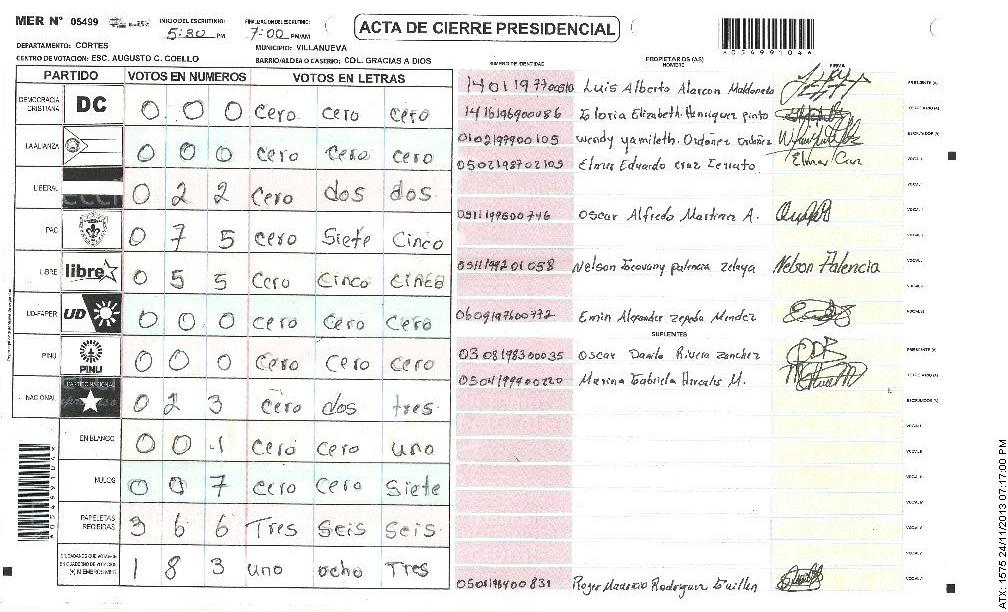 MER N° 05499
INICIO DEL ESCRUTINIO: 5:30 PM
FINALIZACION DEL ESCRUTINIO: 7:00 PM/AM
ACTA DE CIERRE PRESIDENCIAL
DEPARTAMENTO: CORTES
MUNICIPIO: VILLANUEVA
CENTRO DE VOTACION: ESC. AUGUSTO C. COELLO
BARRIO/ALDEA O CASERIO: COL. GRACIAS A DIOS
PARTIDO VOTOS EN NUMEROS VOTOS EN LETRAS
DEMOCRACIA CRISTIANA DC 0 0 0 cero cero cero
LA ALIANZA 0 0 0 cero cero cero
LIBERAL 0 2 2 cero dos dos
PAC 0 7 5 cero Siete Cinco
LIBRE libre 0 5 5 Cero Cinco cinco
UD-FAPER UD 0 0 0 cero Cero Cero
PINU PINU 0 0 0 cero Cero cero
NACIONAL PARTIDO NACIONAL 0 2 3 cero dos tres
EN BLANCO 0 0 1 cero cero uno
NULOS 0 0 7 cero cero Siete
PAPELETAS RECIBIDAS 3 6 6 Tres Seis Seis
1 8 3 uno ocho Tres
NUMERO DE IDENTIDAD PROPIETARIOS (AS) NOMBRE FIRMA
Luis Alberto Alarcon Maldonado PRESIDENTE (A)
1416196900086 Gloria Elizabeth Henriquez pinto SECRETARIO (A)
0102197900105 wendy yamileth Ordoñez Ordoñez ESCRUTADOR (A)
0502198702105 Elmer Eduardo cruz Elmer Cruz
Oscar Alfredo Martinez A.
0511199201058 Nelson Geovany palencia zelaya Nelson Palencia
0609197600772 Emin Alexander zepeda Mendez
SUPLENTES
0308198300035 Oscar Danilo Rivera Sanchez PRESIDENTE (A)
0504199400220 Marina Gabriela M. SECRETARIO (A)
ESCRUTADOR (A)
Roger Mauricio Rodriguez Guillen
ATX: 1575 24/11/2013 07:17:00 PM